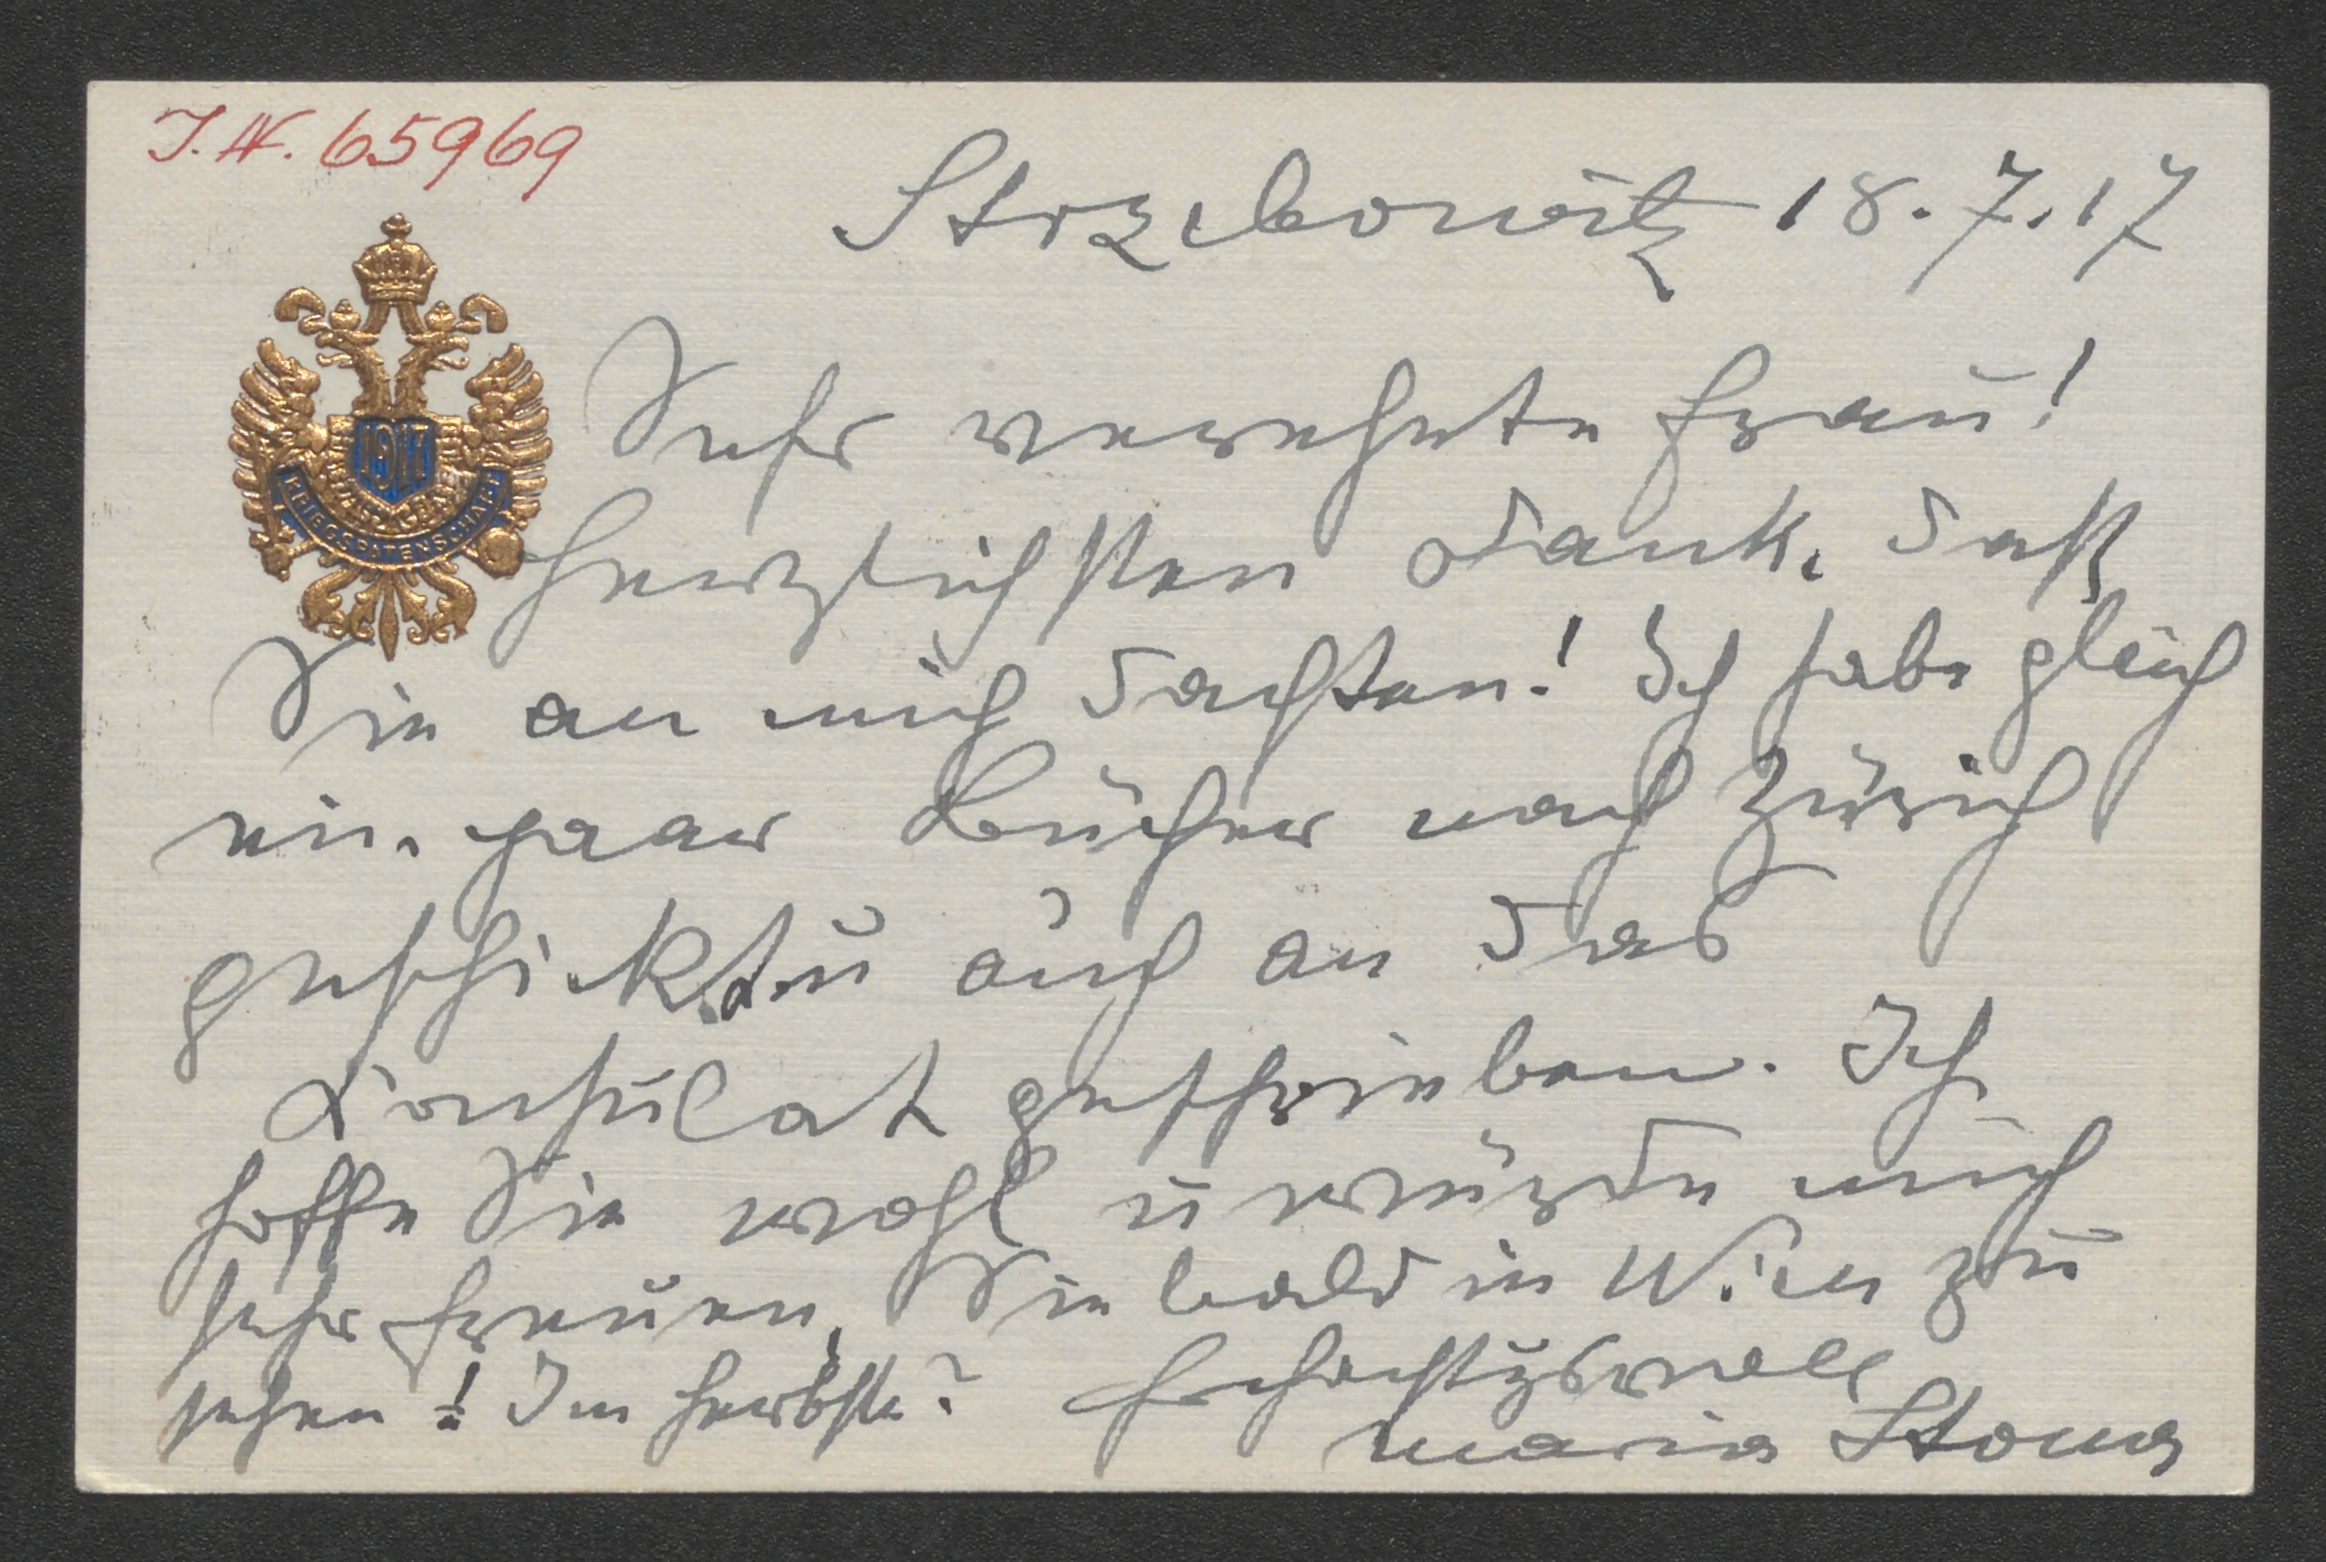 I.N. 65969
Strzebowitz 18.7.17
1917
KRIEGSPATENSCHAFT
Sehr verehrte Frau!
Herzlichsten Dank, daß
Sie an mich dachten! Ich habe gleich
ein paar Bücher nach Zürich
geschickt u auch an das
Konsulat geschrieben. Ich
hoffe Sie wohl u würde mich
sehr freuen, Sie bald in Wien zu
sehen! Im Herbste? Hochachtungsvoll
Maria Stona